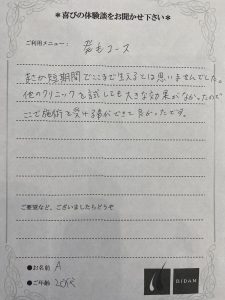 ＊喜びの体験談をお聞かせ下さい＊
ご利用メニュー：
発毛コース
まさか短期間でここまで生えるとは思いませんでした。
他のクリニックを試しても大きな効果がなかったので
ここで施術を受ける事ができて良かったです。
ご要望など、ございましたらどうぞ
●お名前 A
●ご年齢 20代
RIDAN